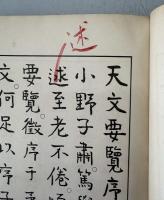 迷
天文要覽序
小野子肅篤
遂至老不倦
要覽徵序于
文何足以序